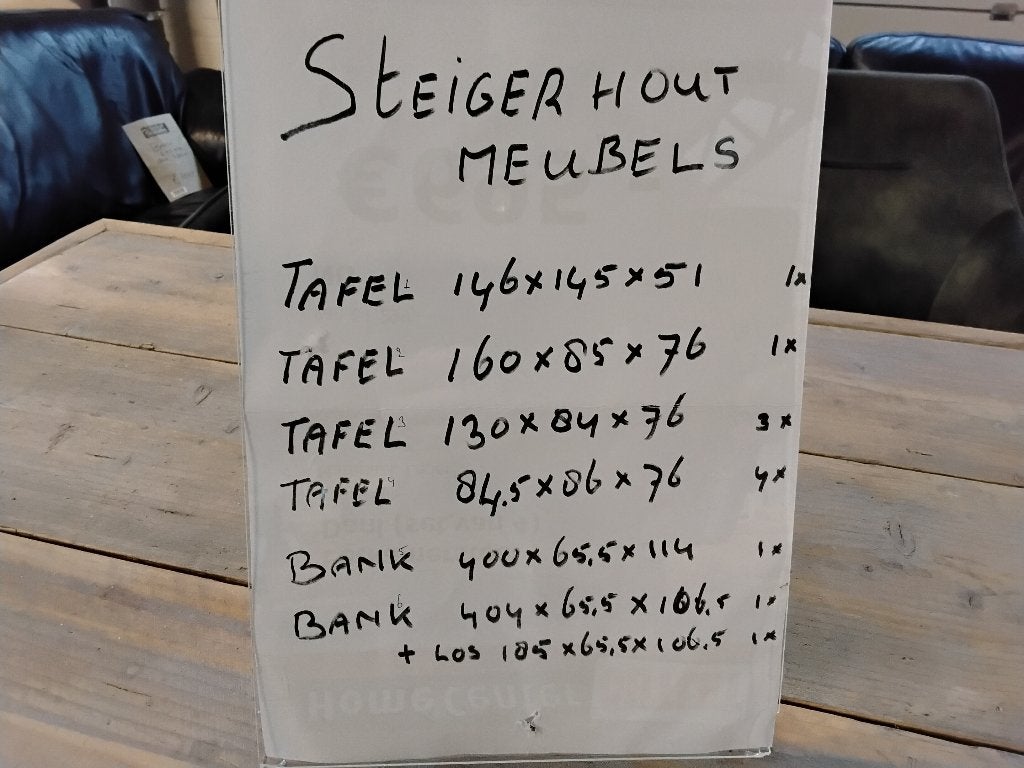 STEIGER HOUT
MEUBELS
TAFEL 1 146x145x51 1x
TAFEL 2 160x85x76 1x
TAFEL 3 130x84x76 3x
TAFEL 4 84,5x86x76 4x
BANK 400x65,5x114 1x
BANK 404x65,5x106,5 1x
+ LOS 185x65,5x106,5 1x